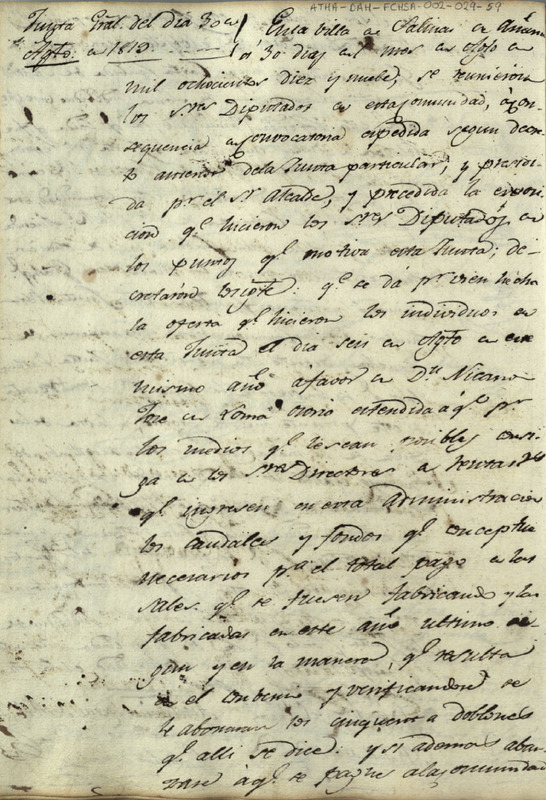 ATHA-DAH-FCHSA-002-029-59
Junta Gral. del dia 30 de
Agto. de 1819.
En la villa de Salinas de Añana
á 30 dias del mes de Agto de
mil ochocientos diez y nueve, se reunieron
los Sres Diputados de esta comunidad, á con-
sequencia de convocatoria expedida segun decre-
to anterior de la Junta particular, y presidi-
da pr. el Sr. Alcalde, y precedida la
cion qe. hicieron los Sres Diputados de
los puntos qe. motiva esta Junta; de-
cretaron lo sigte: qe. se dá pr. bien hecha
la oferta qe. hicieron los individuos de
esta Junta el dia seis de Agto de este
mismo año á favor de Dn. Nicanor
Jose de Loma entendida á qe. pr.
los medios qe. le sean posibles consi-
ga de los Sres Directores de Rentas
qe. ingresen en esta administracion
los caudales y fondos qe. conceptue
necesarios pa. el total pago de las
sales qe. se fuesen fabricando y las
fabricadas en este año ultimo se-
gun y en la manera, qe. resulta
de el convenio y verificandose se
le abonaran los cinquenta doblones
qe. alli se dice: y si ademas alcan-
zare á qe. se pague á la comunidad